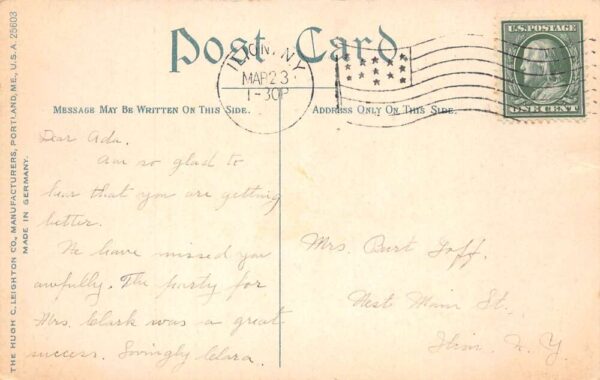 Post Card
ILION, N.Y.
MAR 23
1-30P
U.S. POSTAGE
ONE CENT
MESSAGE MAY BE WRITTEN ON THIS SIDE.
ADDRESS ONLY ON THIS SIDE.
THE HUGH C. LEIGHTON CO., MANUFACTURERS, PORTLAND, ME., U.S.A. 25603
MADE IN GERMANY.
Dear Ada.
Am so glad to
hear that you are getting
better.
We have missed you
awfully. The party for
Mrs. Clark was a great
success. Lovingly Clara.
Mrs. Burt Goff.
West Main St.,
Ilion N. Y.